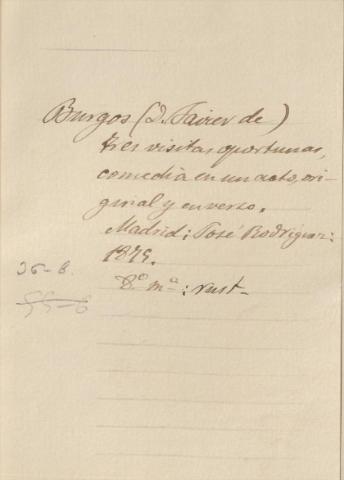 Burgos (D. Javier de)
tres visitas oportunas,
comedia en un acto, ori-
ginal y en verso.
Madrid: José Rodriguez:
1875.
36-6.
8.º m.ª: rust-
55-6